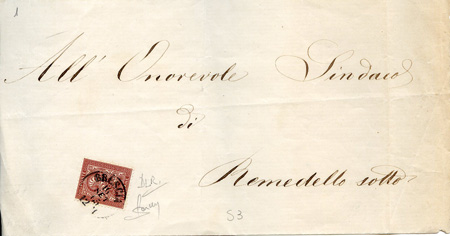 1
All' Onorevole Sindaco
di
Remedello sotto
BRESCIA
DLR
S3